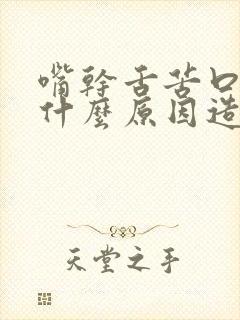 嘴幹舌苦口
什麼原因造
天堂之手